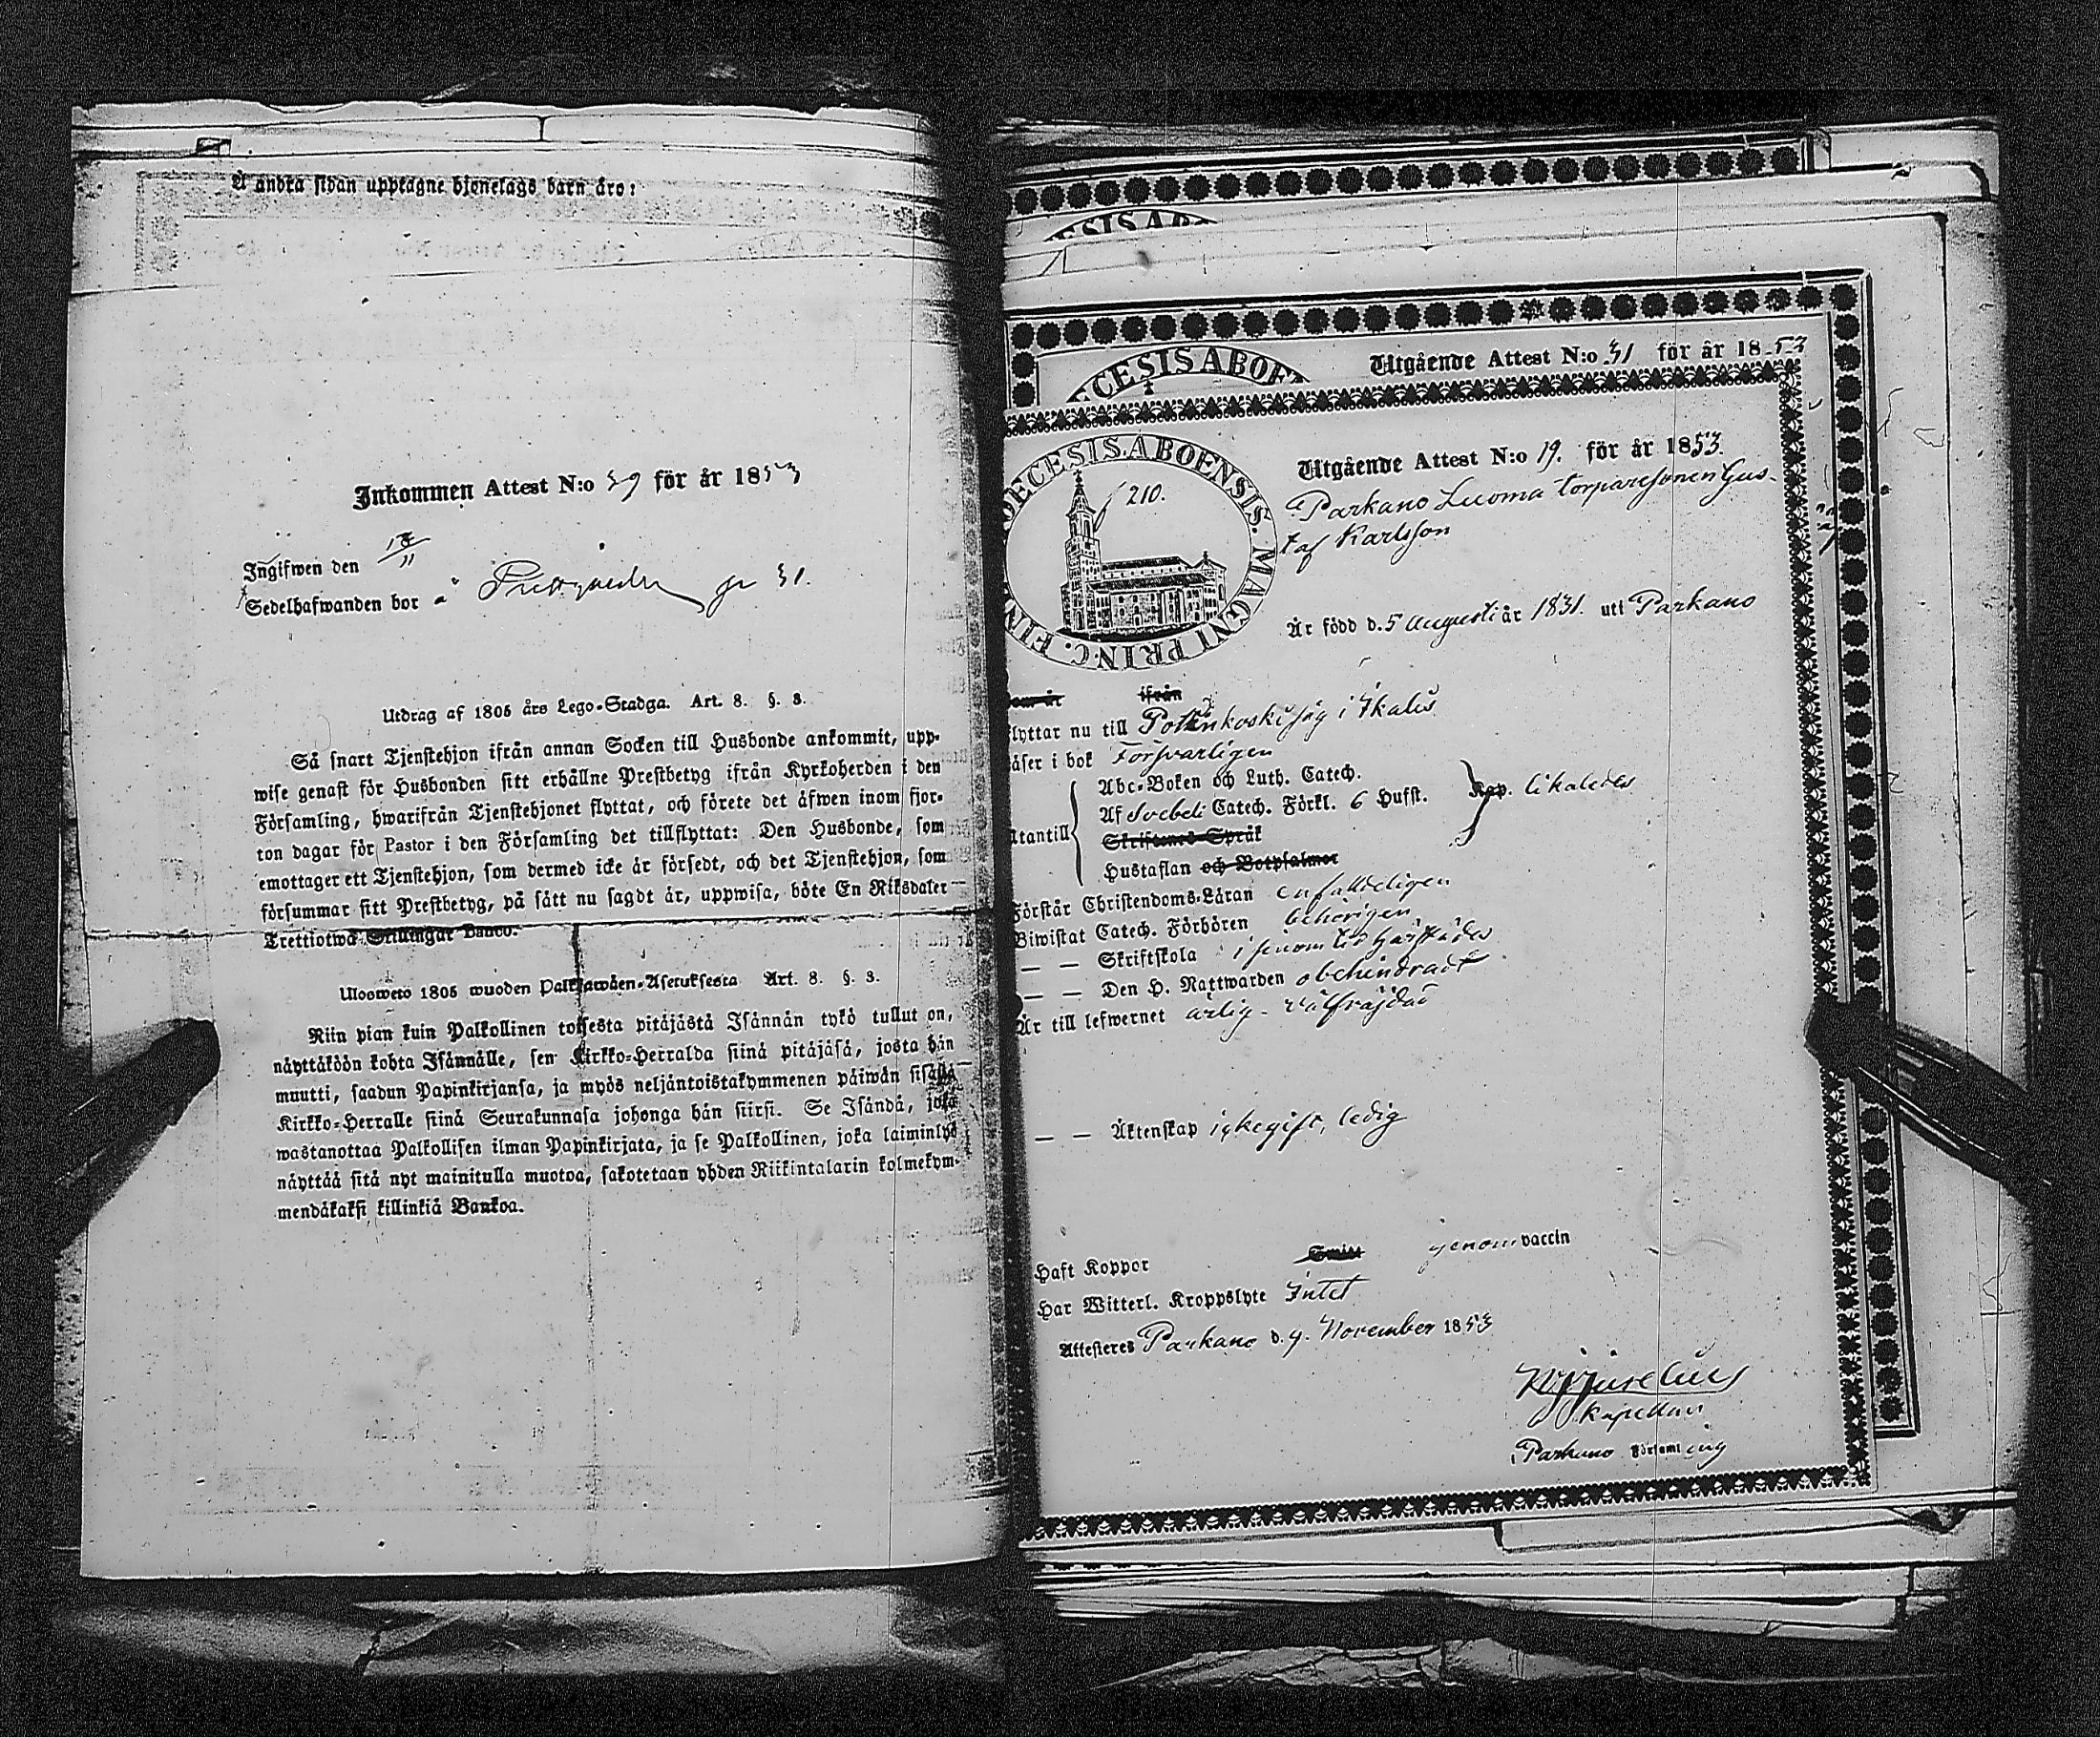 Å andra sidan upptagne hjonelags barn äro:
Inkommen Attest N:o 39 för år 1853
Ingifwen den 18/11
Sedelhafwanden bor å
Utdrag af 1805 års Lego-Stadga. Art. 8. §. 3.
Så snart Tjenstehjon ifrån annan Socken till Husbonde ankommit, upp-
wise genast för Husbonden sitt erhållne Prestbetyg ifrån Kyrkoherden i den
Församling, hwarifrån Tjenstehjonet flyttat, och förete det äfwen inom fjor-
ton dagar för Pastor i den Församling det tillflyttat: Den Husbonde, som
emottager ett Tjenstehjon, som dermed icke är försedt, och det Tjenstehjon, som
försummar sitt Prestbetyg, på sätt nu sagdt är, uppwisa, böte En Riksdaler
Trettiotwå Skillingar Banco.
Ulosweto 1805 wuoden Palkkawäen-Asetuksesta Art. 8. §. 3.
Niin pian kuin Palkollinen toisesta pitäjästä Isännän tykö tullut on,
näyttäköön kohta Isännälle, sen Kirkko-Herralda siinä pitäjäsä, josta hän
muutti, saadun Papinkirjansa, ja myös neljäntoistakymmenen päiwän sisällä
Kirkko-Herralle siinä Seurakunnasa johonga hän siirsi. Se Isändä, joka
wastanottaa Palkollisen ilman Papinkirjata, ja se Palkollinen, joka laiminlyö
näyttää sitä nyt mainitulla muotoa, sakotetaan yhden Riikintalarin kolmekym-
mendäkaksi killinkiä Bankoa.
ESIS AB
CESIS ABOE
Utgående Attest N:o 31 för år 1853
OECESIS. ABOENSIS. MAGNI PRINC. FIN
210.
Utgående Attest N:o 19. för år 1853.
Parkano Luoma torparesonen Gus-
taf Karlsson
Är född d. 5 Augusti år 1831. uti Parkano
ifrån
lyttar nu till i Ikalis
äser i bok Försvarligen
Abc-Boken och Luth. Catech.
Af Svebeli Catech. Förkl. 6 Hufst. Kap. likaledes
utantill Skriftenes Språk
Hustaflan och Botpsalmer
Förstår Christendoms-Läran enfalldeligen
Biwistat Catech. Förhören behörigen
— — Skriftskola
— — Den H. Nattwarden obehindradt
Är till lefwernet ärlig - välfräjdad
— — Äktenskap ickegift, ledig
Haft Koppor genom vaccin
Har Witterl. Kroppslyte Intet
Attesteres Parkano d. 4. November 1853
Kapellan
i Parkano Församling